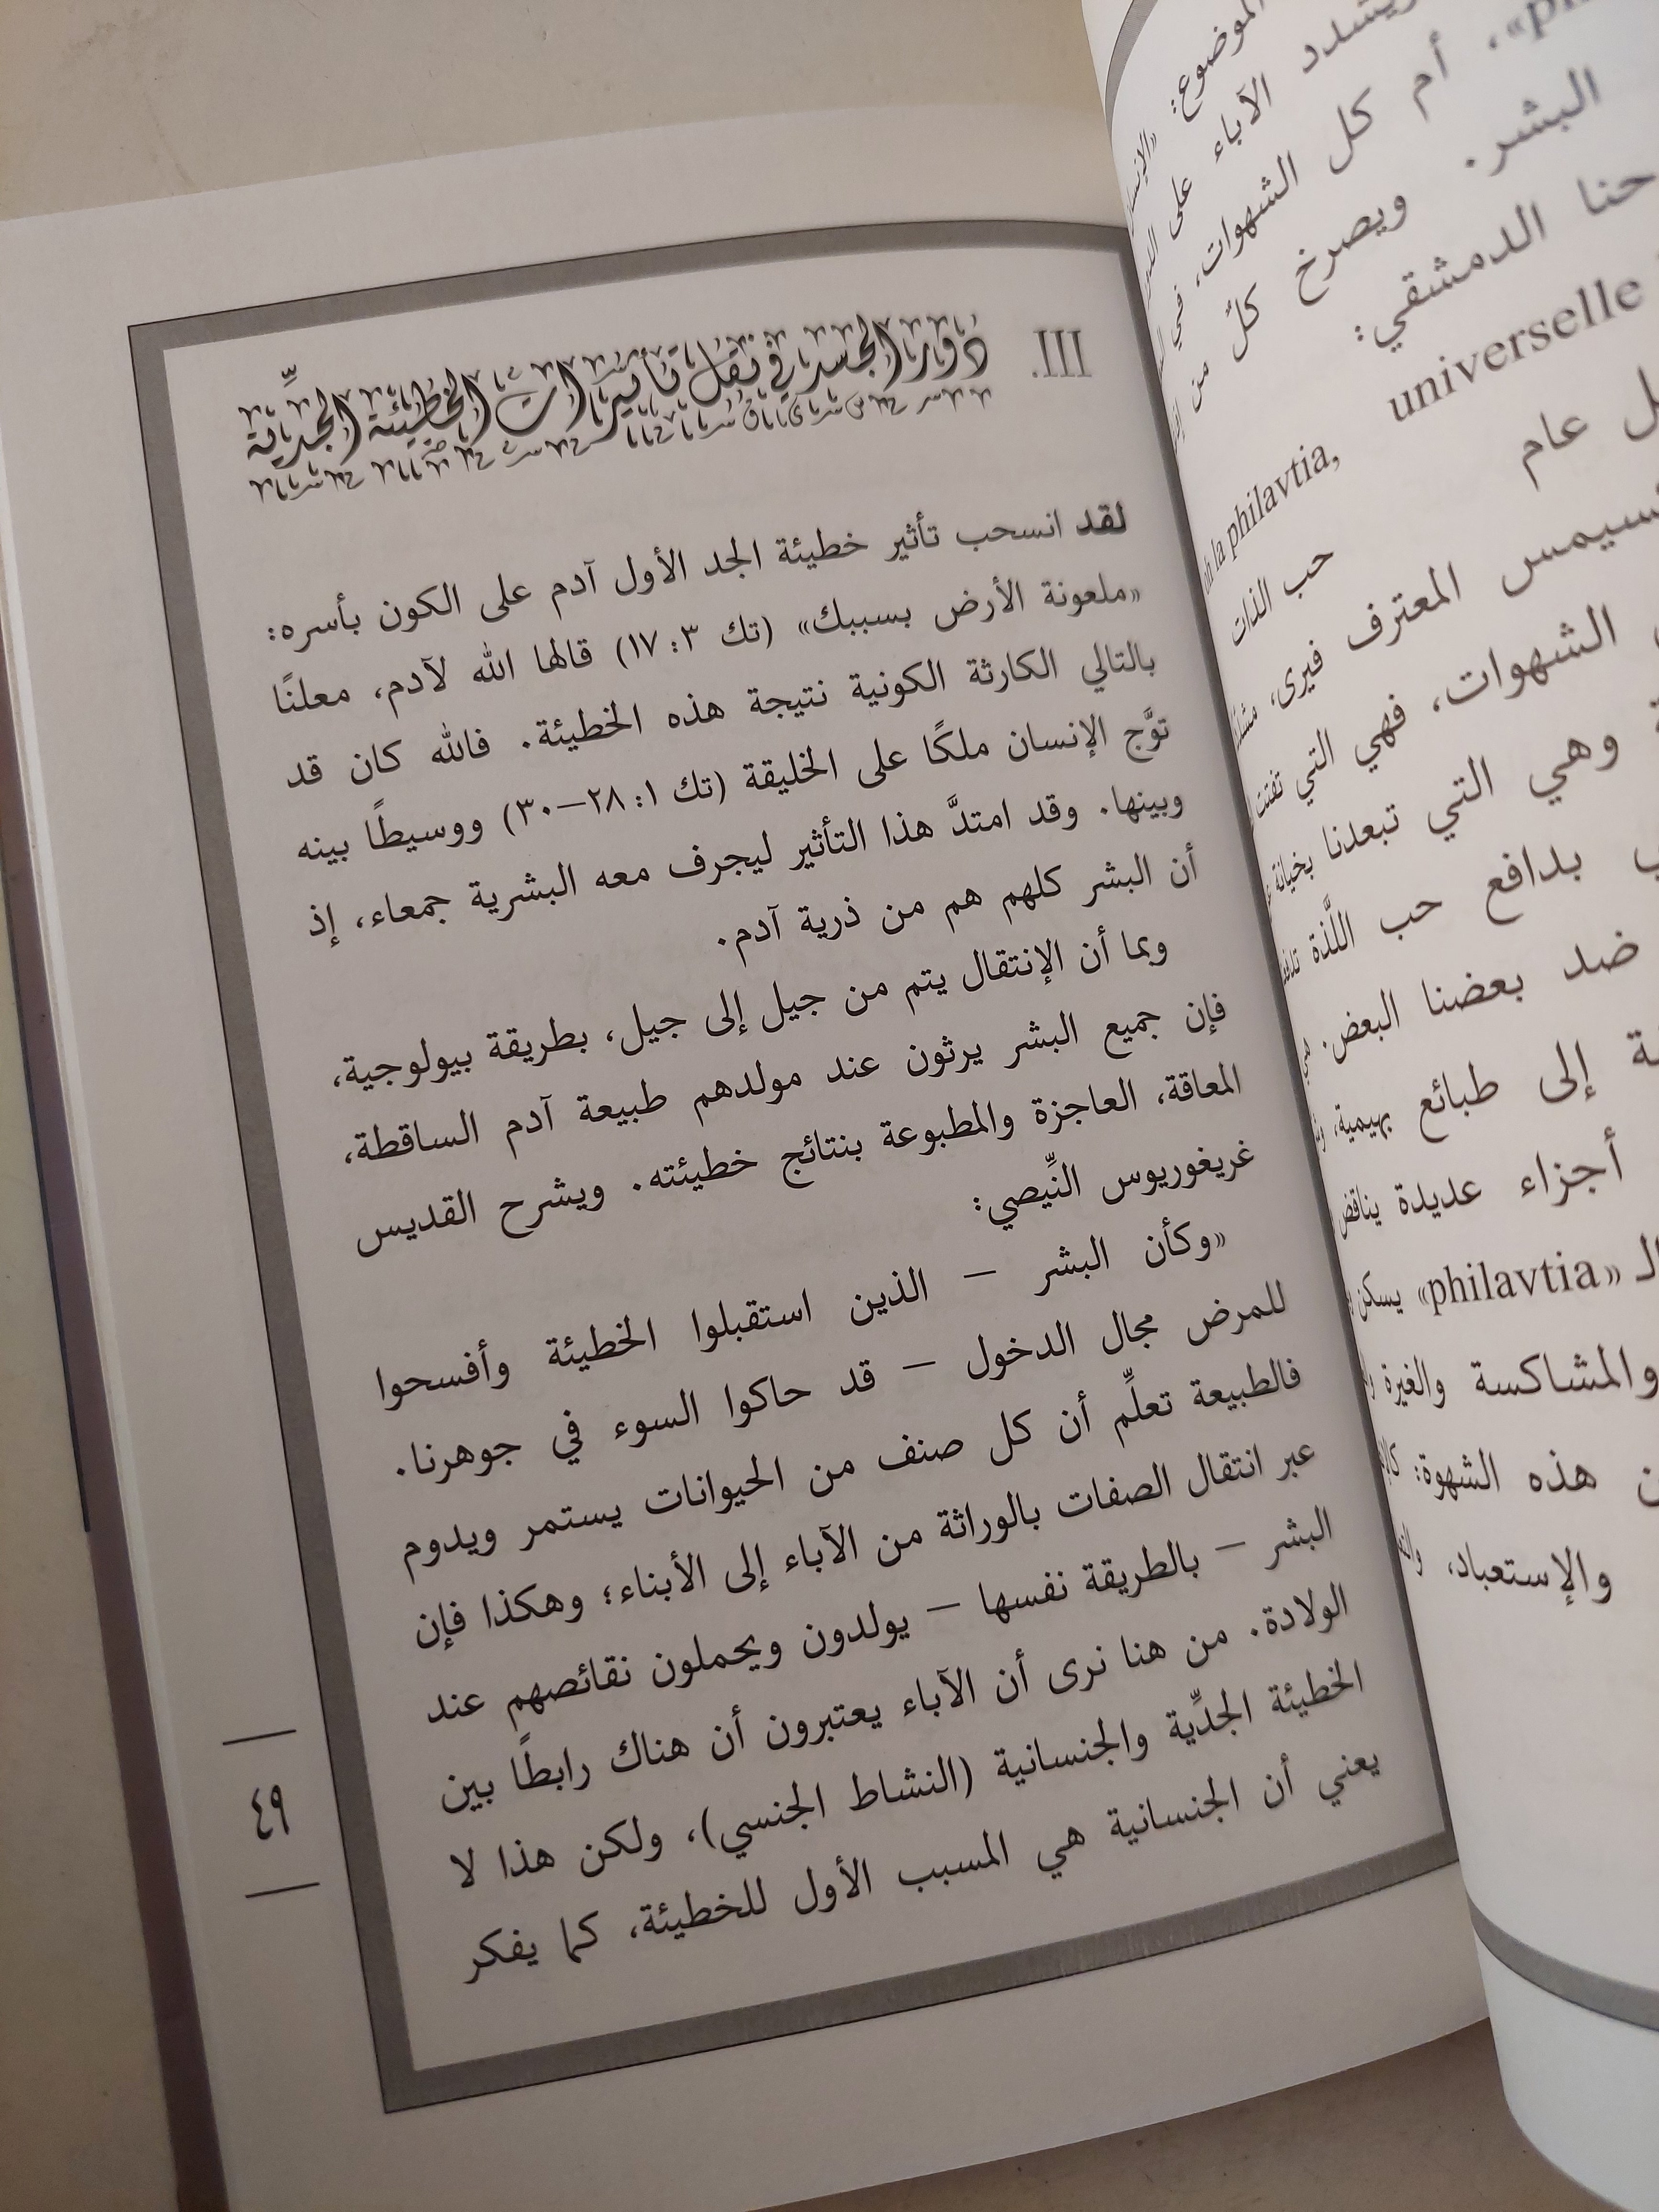 الموضوع: «الإنسان
يشدد الآباء على
أم كل الشهوات، في
البشر. ويصرخ كلٌ من
حنا الدمشقي:
universelle
la philavtia,
ل عام
حب الذات
سيمس المعترف فيرى،
الشهوات، فهي التي
وهي التي تبعدنا بخيانة
بدافع حب اللَّذة
ضد بعضنا البعض.
إلى طبائع بهيمية،
أجزاء عديدة يناقض
الـ «philavtia» يسكن
والمشاكسة والغيرة
هذه الشهوة:
والإستعباد،
III. دور الجسد في نقل تأثيرات الخطيئة الجدِّية
لقد انسحب تأثير خطيئة الجد الأول آدم على الكون بأسره:
«ملعونة الأرض بسببك» (تك ٣: ١٧) قالها الله لآدم، معلنًا
بالتالي الكارثة الكونية نتيجة هذه الخطيئة. فالله كان قد
توَّج الإنسان ملكًا على الخليقة (تك ١: ٢٨–٣٠) ووسيطًا بينه
وبينها. وقد امتدَّ هذا التأثير ليجرف معه البشرية جمعاء، إذ
أن البشر كلهم هم من ذرية آدم.
وبما أن الإنتقال يتم من جيل إلى جيل، بطريقة بيولوجية،
فإن جميع البشر يرثون عند مولدهم طبيعة آدم الساقطة،
المعاقة، العاجزة والمطبوعة بنتائج خطيئته. ويشرح القديس
غريغوريوس النِّيصي:
«وكأن البشر – الذين استقبلوا الخطيئة وأفسحوا
للمرض مجال الدخول – قد حاكوا السوء في جوهرنا.
فالطبيعة تعلِّم أن كل صنف من الحيوانات يستمر ويدوم
عبر انتقال الصفات بالوراثة من الآباء إلى الأبناء؛ وهكذا فإن
البشر – بالطريقة نفسها – يولدون ويحملون نقائصهم عند
الولادة. من هنا نرى أن الآباء يعتبرون أن هناك رابطًا بين
الخطيئة الجدِّية والجنسانية (النشاط الجنسي)، ولكن هذا لا
يعني أن الجنسانية هي المسبب الأول للخطيئة، كما يفكر
٤٩